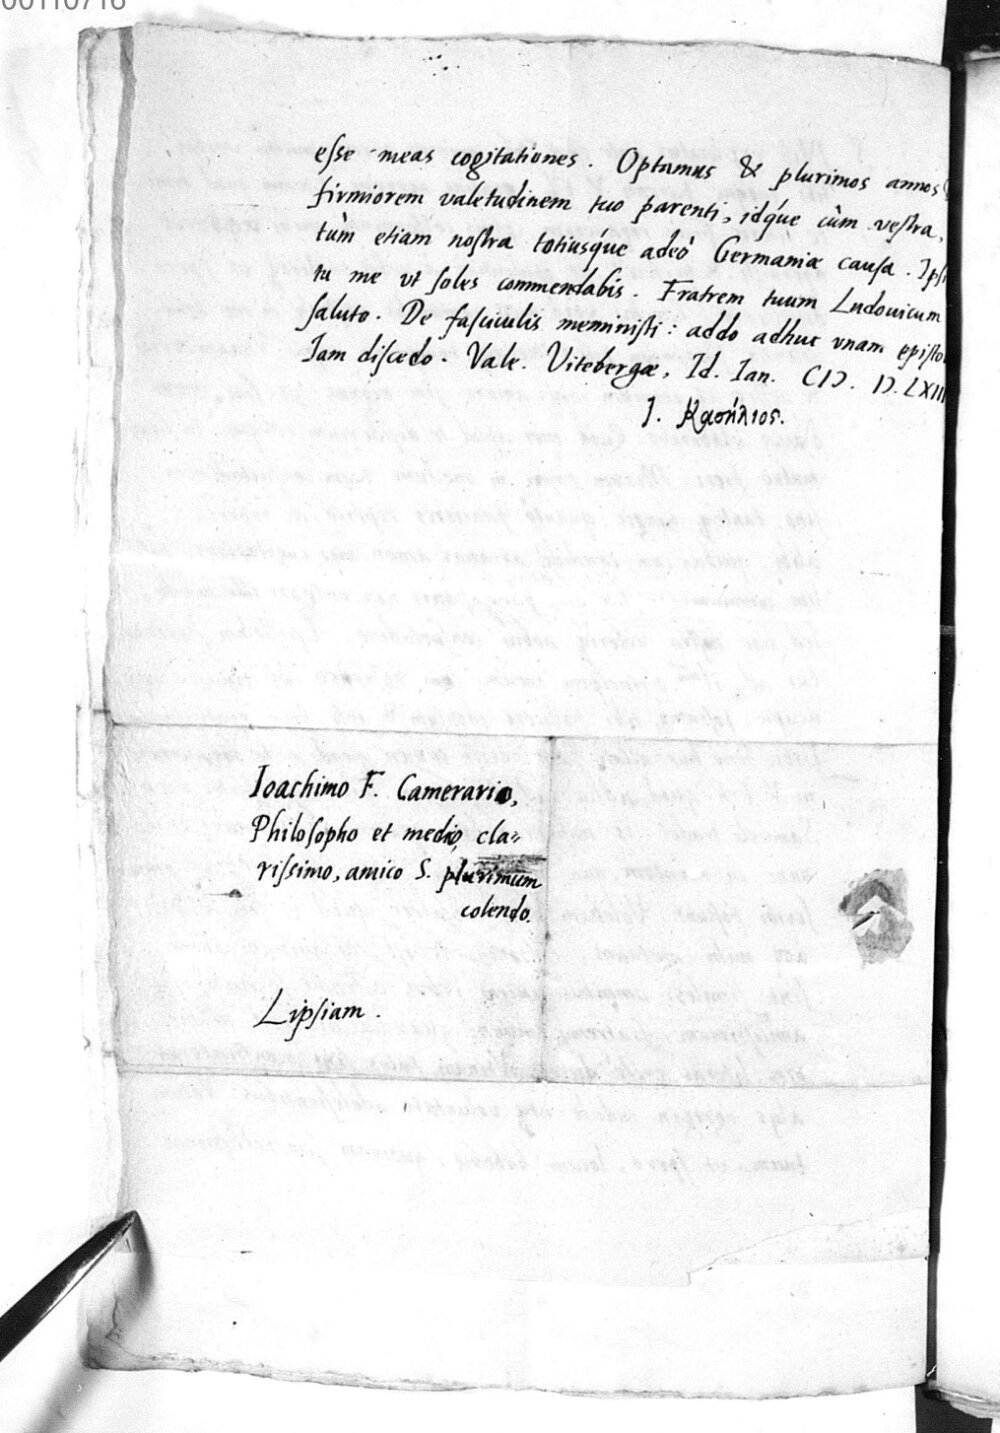 00110716
esse meas cogitationes. Optamus & plurimos annos
firmiorem valetudinem tuo parenti, idq́ue cùm vestra,
tùm etiam nostra totiusq́ue adeò Germaniæ causa. Ipsi
tu me vt soles commendabis. Fratrem tuum Ludouicum
saluto. De fasciculis meministi: addo adhuc vnam episto
Iam discedo. Vale. Vitebergæ, Id. Ian. CIƆ. IƆ. LXIII
J.
Ioachimo F. Camerario,
Philosopho et medico, cla=
rissimo, amico S. plurimum
colendo.
Lipsiam.